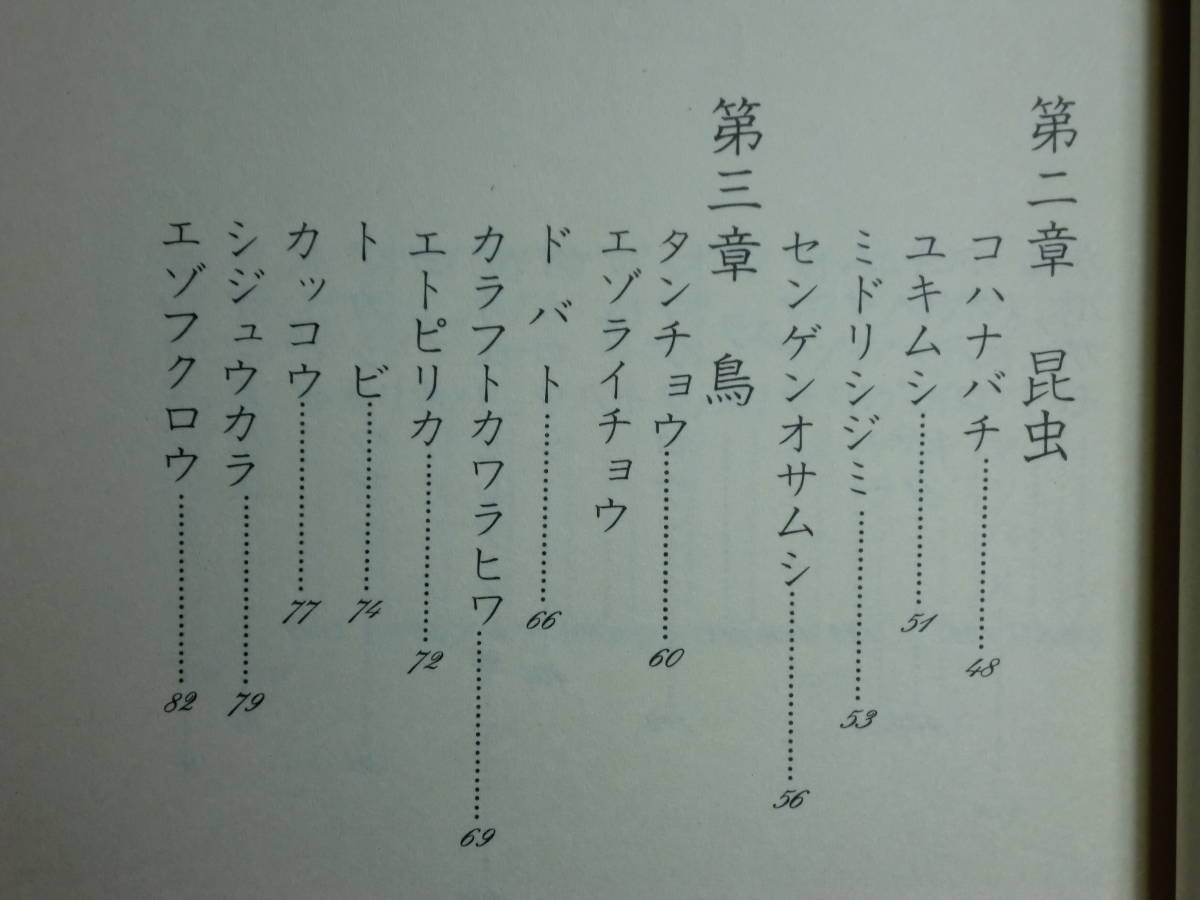 第二章　昆虫
コハナバチ…………48
ユキムシ…………51
ミドリシジミ…………53
センゲンオサムシ…………56
第三章　鳥
タンチョウ…………60
エゾライチョウ
ドバト…………66
カラフトカワラヒワ…………69
エトピリカ…………72
トビ…………74
カッコウ…………77
シジュウカラ…………79
エゾフクロウ…………82